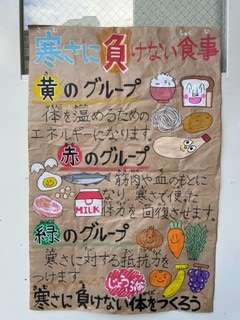 寒さに負けない食事
黄のグループ
体を温めるための
エネルギーになります。
赤のグループ
筋肉や血のもとに
なり寒さで使った
体力を回復させます。
MILK
緑のグループ
寒さに対する抵抗力を
つけます。
寒さに負けない体をつくろう